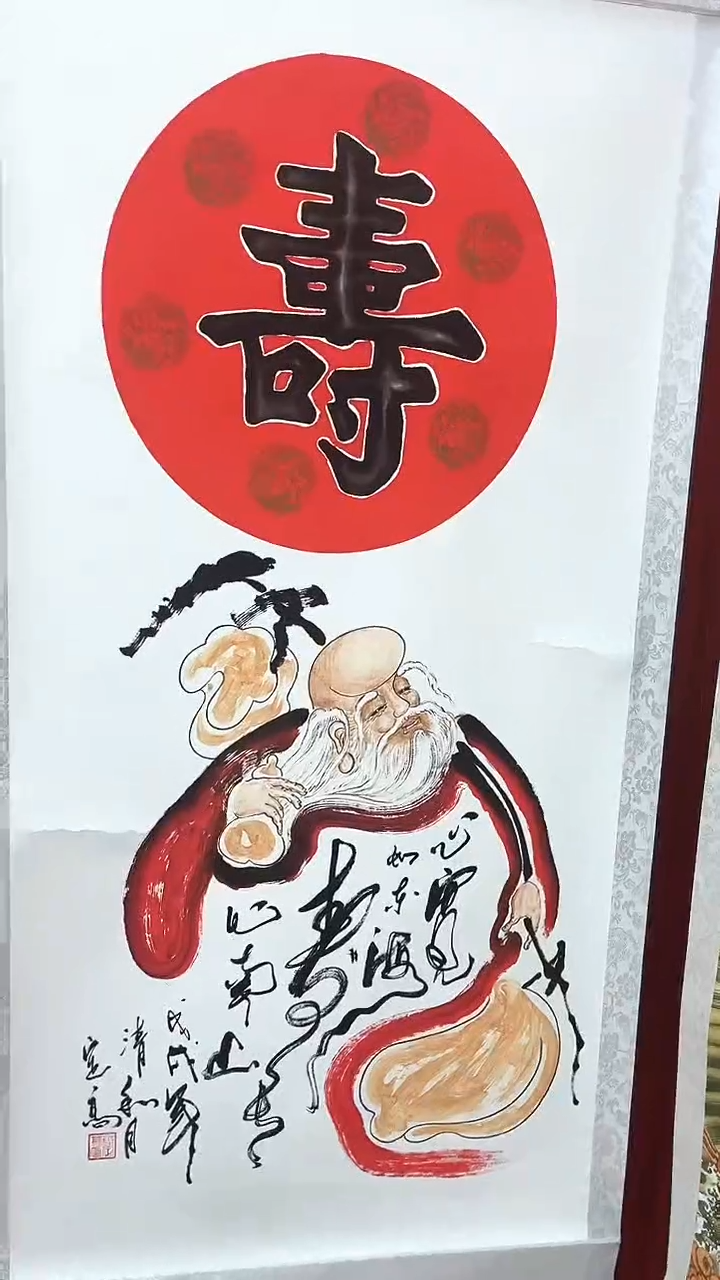 壽
心寬
如东海
壽
比南山
戊戌年
清和月
定高